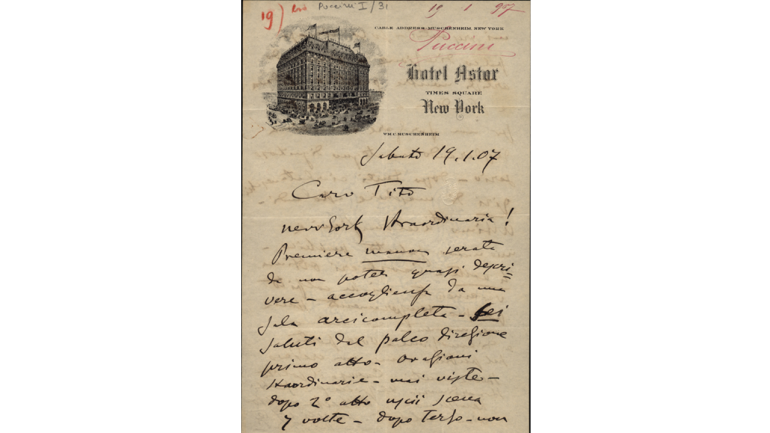 19) Puccini I/31
19 1 907
CABLE ADDRESS, MUSCHENHEIM, NEW YORK
Puccini
Hotel Astor
TIMES SQUARE
New York
WM. C. MUSCHENHEIM
Sabato 19.1.07
Caro Tito
New York straordinaria!
Premiere manon serata
da non potersi quasi descri=
vere – accoglienze da una
sala arcicompleta – Sei
saluti dal palco direzione
primo atto – Ovazioni
straordinarie – mai viste –
dopo 2º atto uscii scena
7 volte – dopo terzo – non